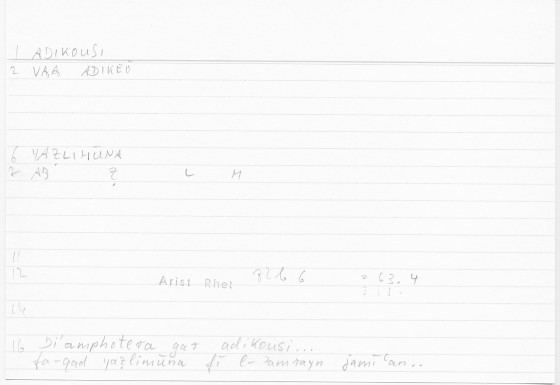 1 ADIKOUSI
2 VAA ADIKEŌ
6 YAẒLIMŪNA
7 AB Ẓ L M
11
12 Arist Rhet 82b 6 = 63.4
14
16 Di'amphotera gar adikousi...
fa-qad yaẓlimūna fī l-'amrayn jamī'an..